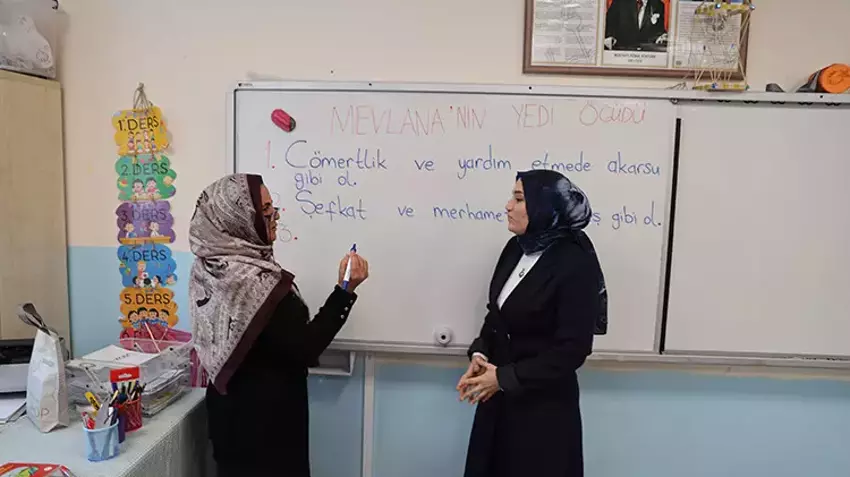 MEVLANA'NIN YEDİ ÖĞÜDÜ
1. Cömertlik ve yardım etmede akarsu
gibi ol.
Şefkat ve gibi ol.
3.
1. DERS
2. DERS
3. DERS
4. DERS
5. DERS